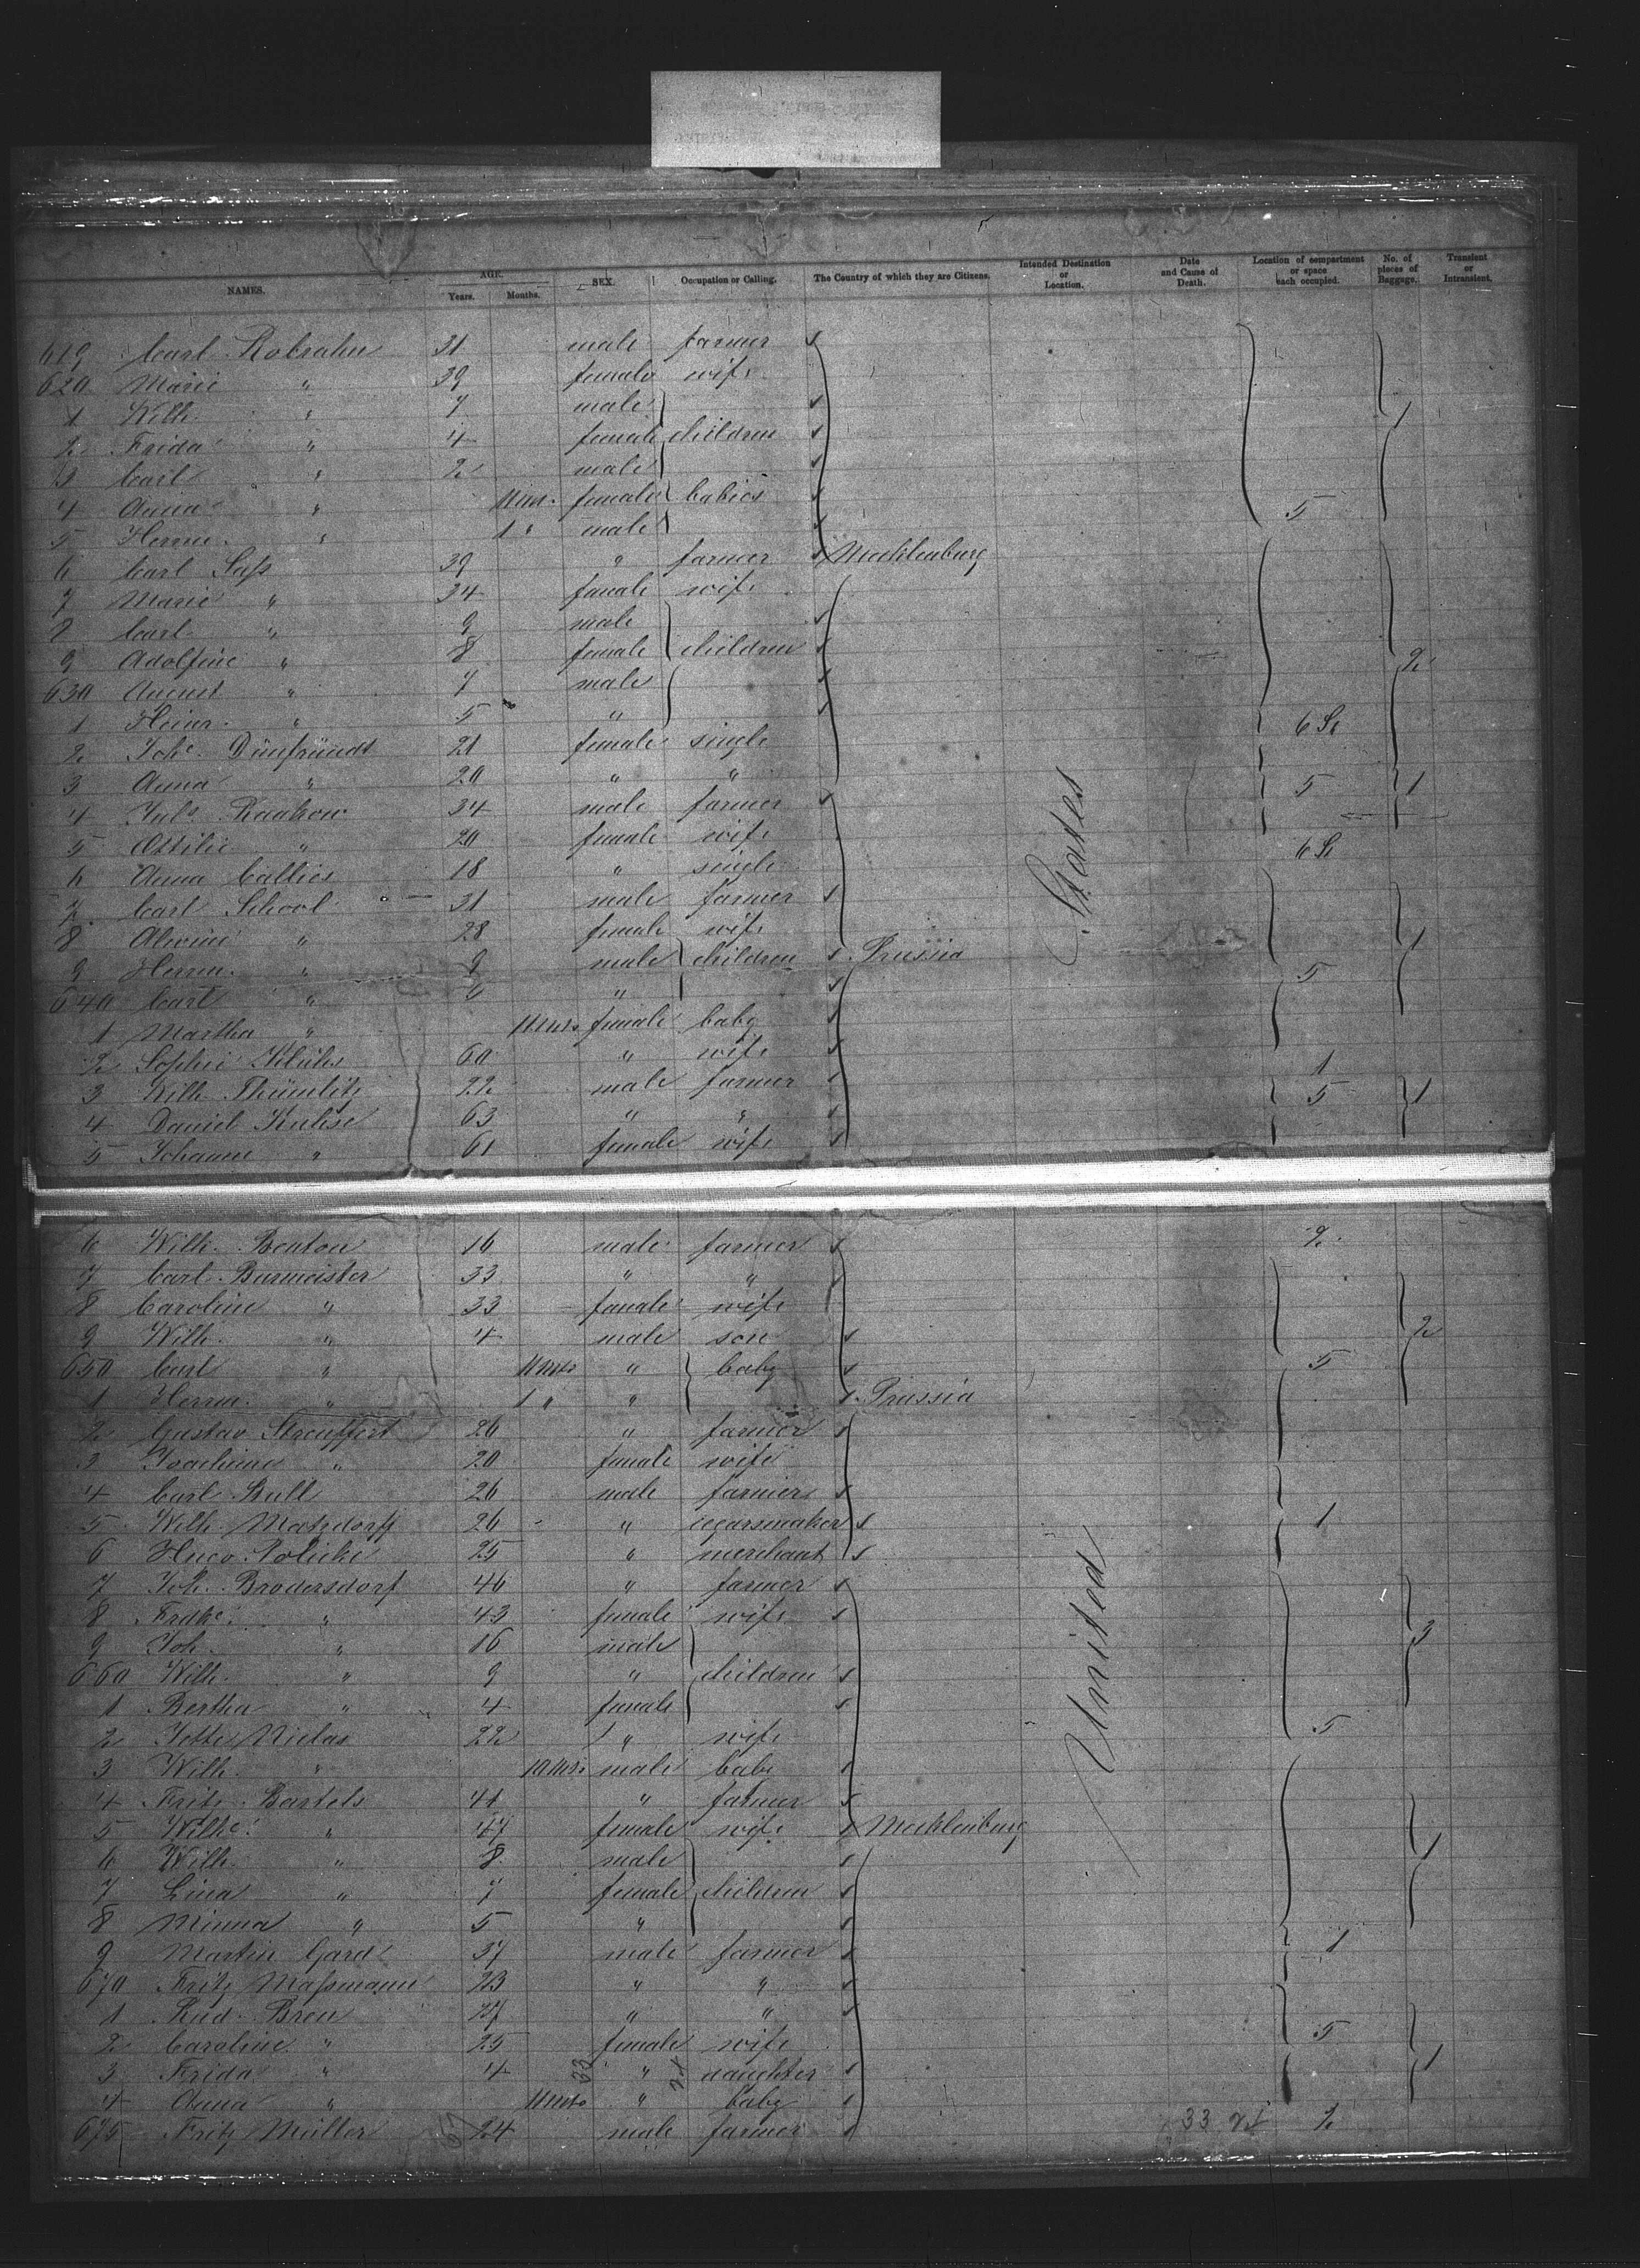 NAMES. AGE. Years. Months. SEX. Occupation or Calling. The Country of which they are Citizens. Intended Destination or Location. Date and Cause of Death. Location of compartment or space each occupied. No. of pieces of Baggage. Transient or Intransient.
619 Carl Robrahn 31 male farmer
620 Marie " 39 female wife
1 Wilh. " 7 male
2 Frida " 4 female children
3 Carl " 2 male
4 Anna " 11 ms. female babies 5
5 Herm. " 1 " male
6 Carl Saß 39 " farmer Mecklenburg
7 Marie " 34 female wife
8 Carl " 9 male
9 Adolfine " 8 female children 2
630 August " 7 male
1 Heinr. " 5 " 6 St
2 Johe. Dünfründt 21 female single
3 Anna " 20 " " 5 1
4 Juls. Raakow 34 male farmer
5 Ottilie " 20 female wife 6 St
6 Anna Callies 18 " single
7 Carl School 31 male farmer
8 Alwine " 28 female wife 1
9 Herm. " 9 male children Prussia 5
640 Carl " 6 "
1 Martha " 11 ms. female baby
2 Sophie 60 " wife 1
3 Wilh. Thümlitz 22 male farmer 5 1
4 Daniel Kuhse 63 " "
5 Johanne " 61 female wife
6 Wilh. Benton 16 male farmer 2
7 Carl Burmeister 33 " "
8 Caroline " 33 female wife
9 Wilh. " 4 male son 2
650 Carl " 11 ms " baby 5
1 Herm. " 1 " " Prussia
2 Gustav Streuffert 26 " farmer
3 Joachime " 20 female wife
4 Carl Bull 26 male farmer
5 Wilh. Matzdorff 26 " cegarsmaker 1
6 Hugo Nolicke 25 " merchant
7 Joh. Brodersdorf 46 " farmer
8 Fridke. " 43 female wife
9 Joh. " 16 male 3
660 Wilh. " 9 " children
1 Bertha " 4 female
2 Jette Niclas 22 " wife 5
3 Wilh. " 10 ms. male baby
4 Fritz Bartels 41 " farmer
5 Wilhe. " 47 female wife Mecklenburg
6 Wilh. " 8 male 1
7 Lina " 7 female children
8 Minna " 5 "
9 Martin Gard 37 male farmer 1
670 Fritz Maßmann 23 " "
1 Rud. Breu 27 " "
2 Caroline " 25 female wife 5
3 Frida " 4 " daughter 1
4 Anna " 11 ms " baby
675 Fritz Müller 24 male farmer 33 24 2
United States